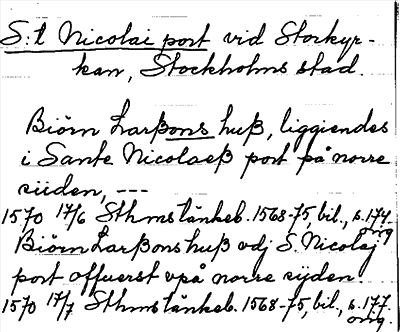 S:t Nicolai port vid Storkyr-
kan, Stockholms stad.
Biörn Larßons huß, liggiendes
i Sante Nicolaeß port på norre
siiden, ---
1570 17/6 Sthms tänkeb. 1568-75, bil., s. 174.
orig.
Biörn Larßons huß vdj S. Nicolaj
port offuerst vpå norre sijden.
1570 17/7 Sthms tänkeb. 1568-75, bil., s. 177.
orig.